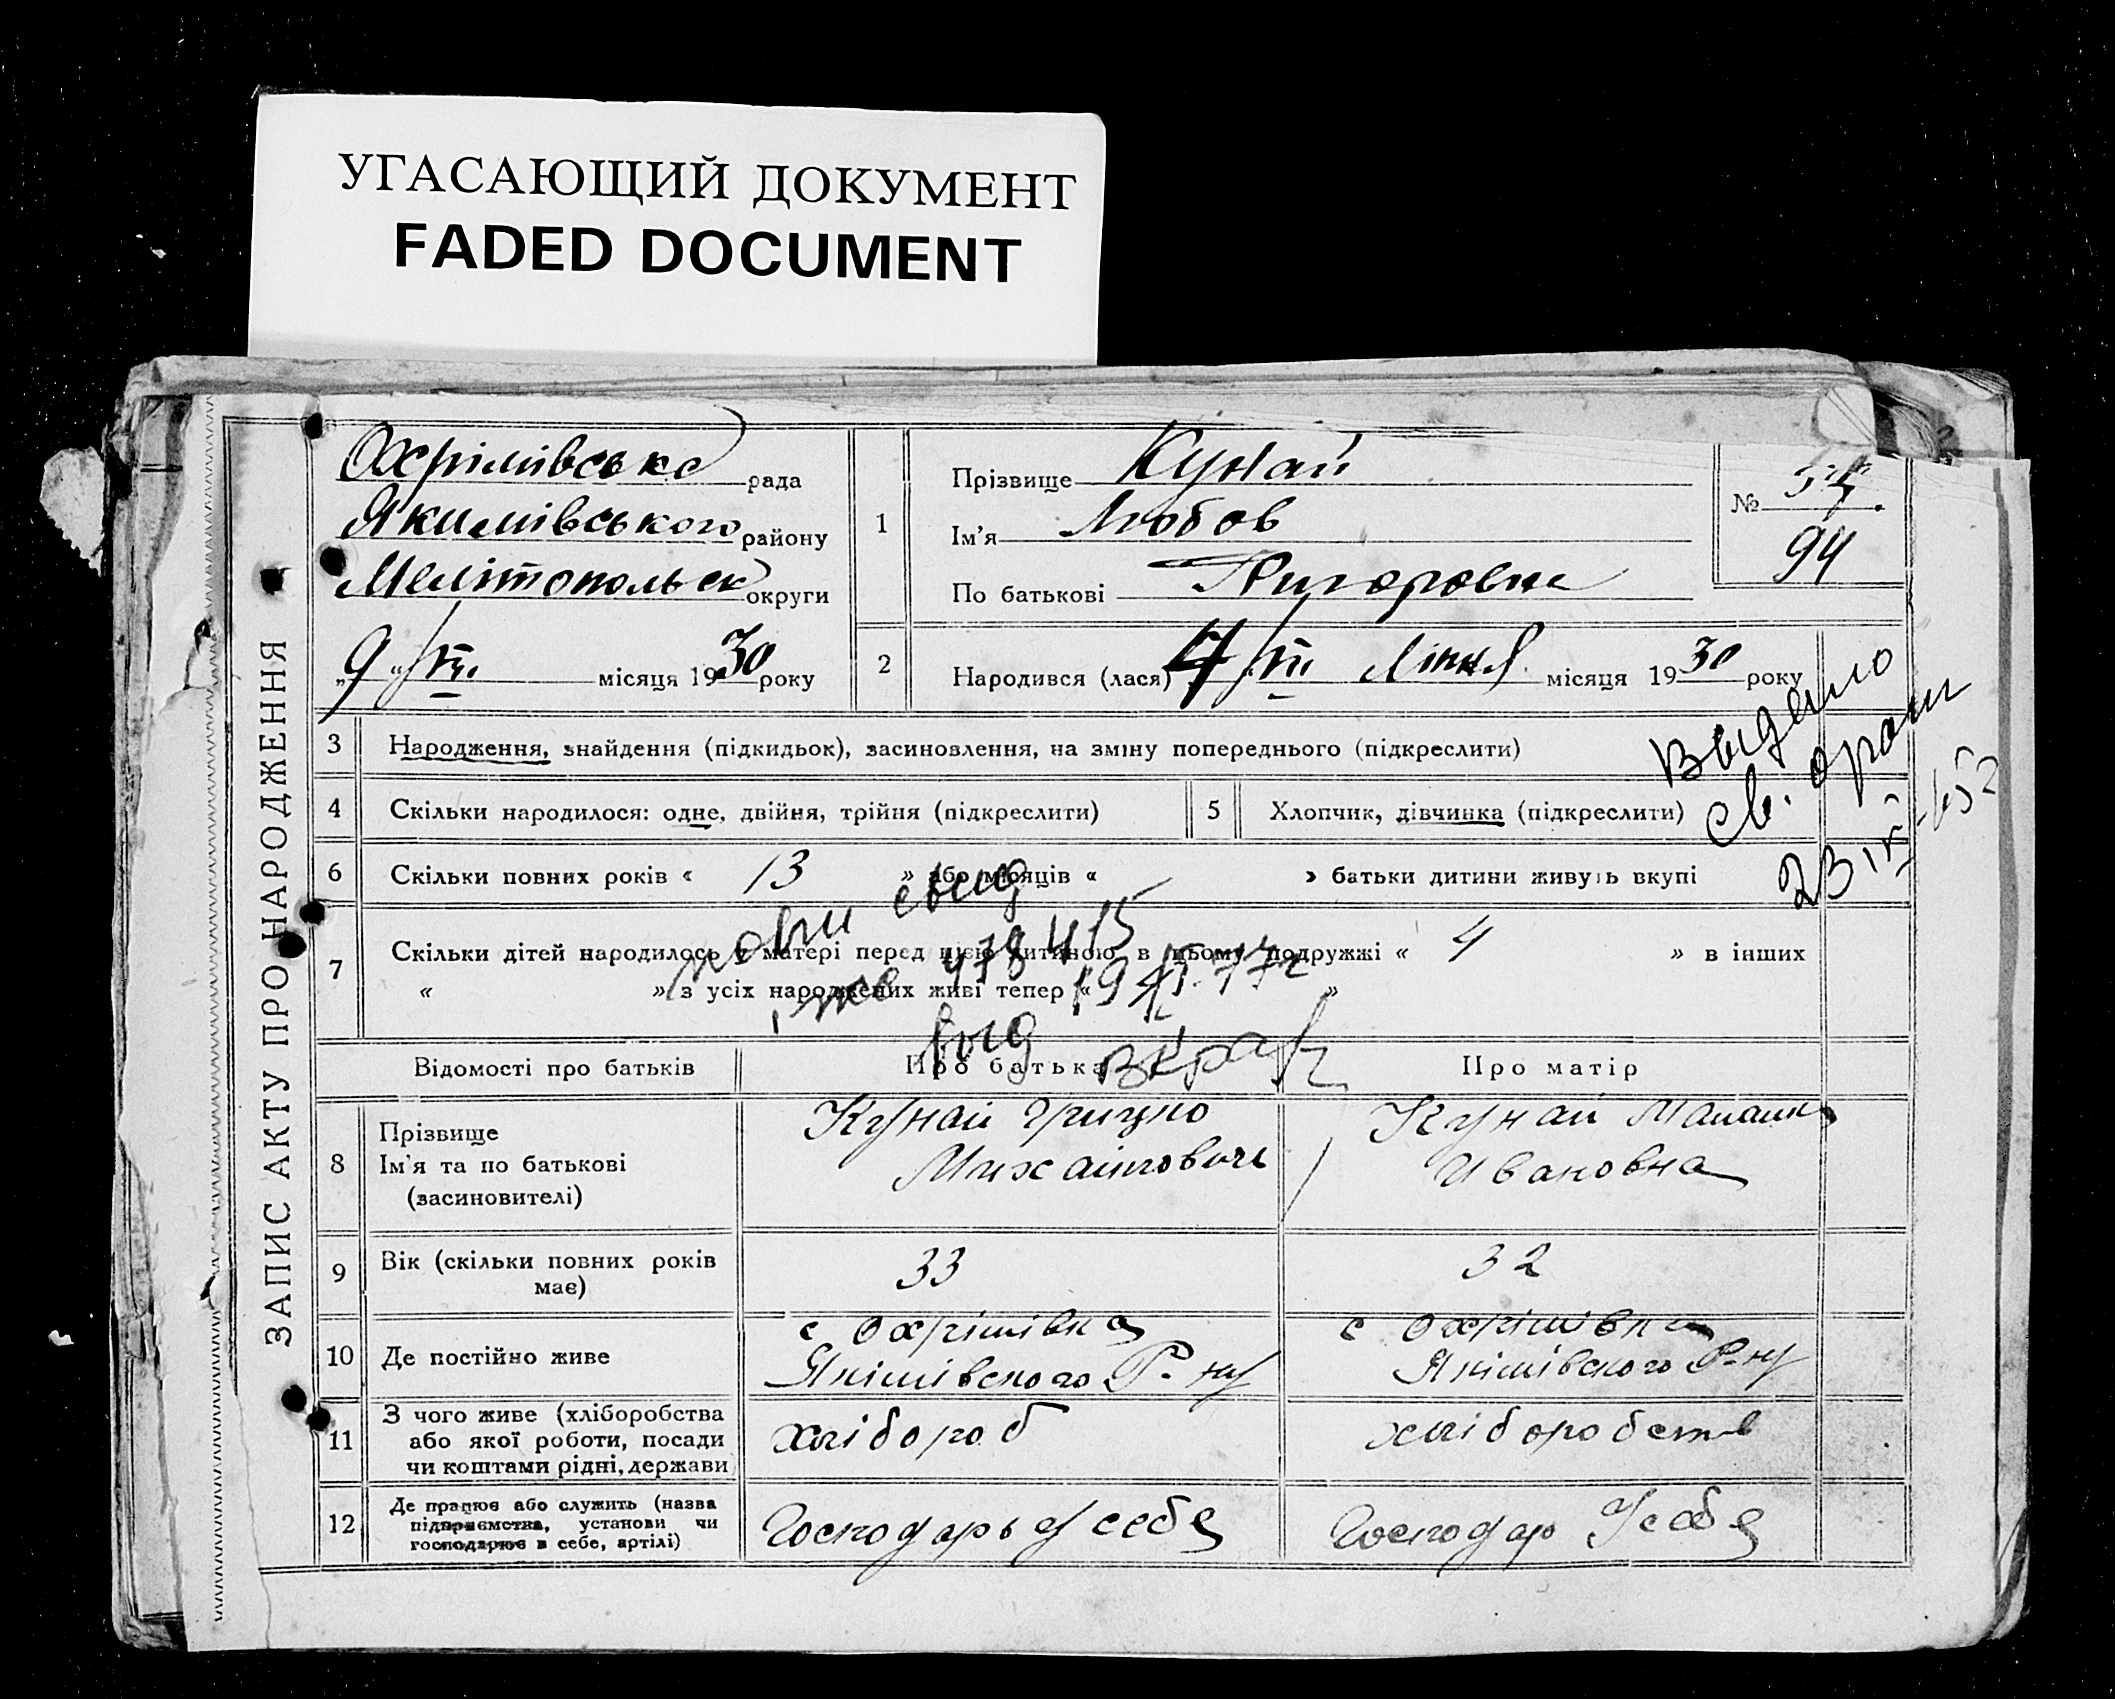 УГАСАЮЩИЙ ДОКУМЕНТ
FADED DOCUMENT
ЗАПИС АКТУ ПРО НАРОДЖЕННЯ
Охрімівська рада
Якимівського району
Мелітопольськ округи
„9“ VII місяця 1930 року
1
Прізвище Кунай
Ім'я Любов
По батькові Григоровна
№
94
2
Народився (лася) 4 VII Липня місяця 1930 року
3 Народження, знайдення (підкидьок), засиновлення, на зміну попереднього (підкреслити)
4 Скільки народилося: одне, двійня, трійня (підкреслити)
5 Хлопчик, дівчинка (підкреслити)
Выдано
св.
6 Скільки повних років « 13 » або місяців « » батьки дитини живуть вкупі
23
7 Скільки дітей народилось у матері перед цією дитиною в цьому подружжі « 4 » в інших
« » з усіх народжених живі тепер « »
повт свид
478415
выд
Відомості про батьків
Про батька
Про матір
8 Прізвище
Ім'я та по батькові
(засиновителі)
Кунай Грицко
Михайлович
Кунай
Ивановна
9 Вік (скільки повних років
має)
33
32
10 Де постійно живе
с Охрімівка
Якімівского Р-ну
с Охрімівка
Якімівского Р-ну
11 З чого живе (хліборобства
або якої роботи, посади
чи коштами рідні, держави
хлібороб
хліборобств
12 Де працює або служить (назва
підприємства, установи чи
господарює в себе, артілі)
Господарь У себе
Господар У себе